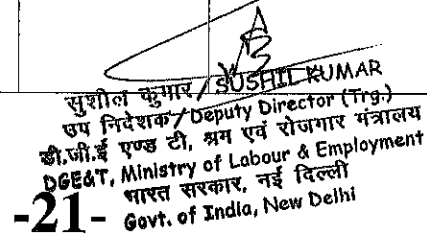 सुशील कुमार/SUSHIL KUMAR
उप निदेशक/Deputy Director (Trg.)
डी.जी.ई एण्ड टी, श्रम एवं रोजगार मंत्रालय
DGE&T, Ministry of Labour & Employment
भारत सरकार, नई दिल्ली
Govt. of India, New Delhi
-21-